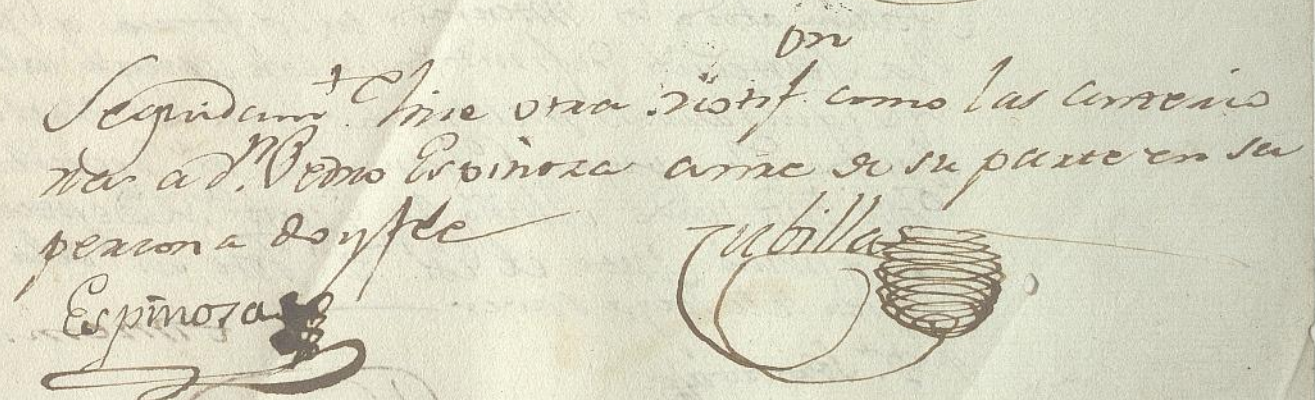 on
Seguidamte hise otra Notif como las anterio
res a Dn Pedro Espinosa ante de su parte en su
persona doy fee
Zubilla
Espinosa